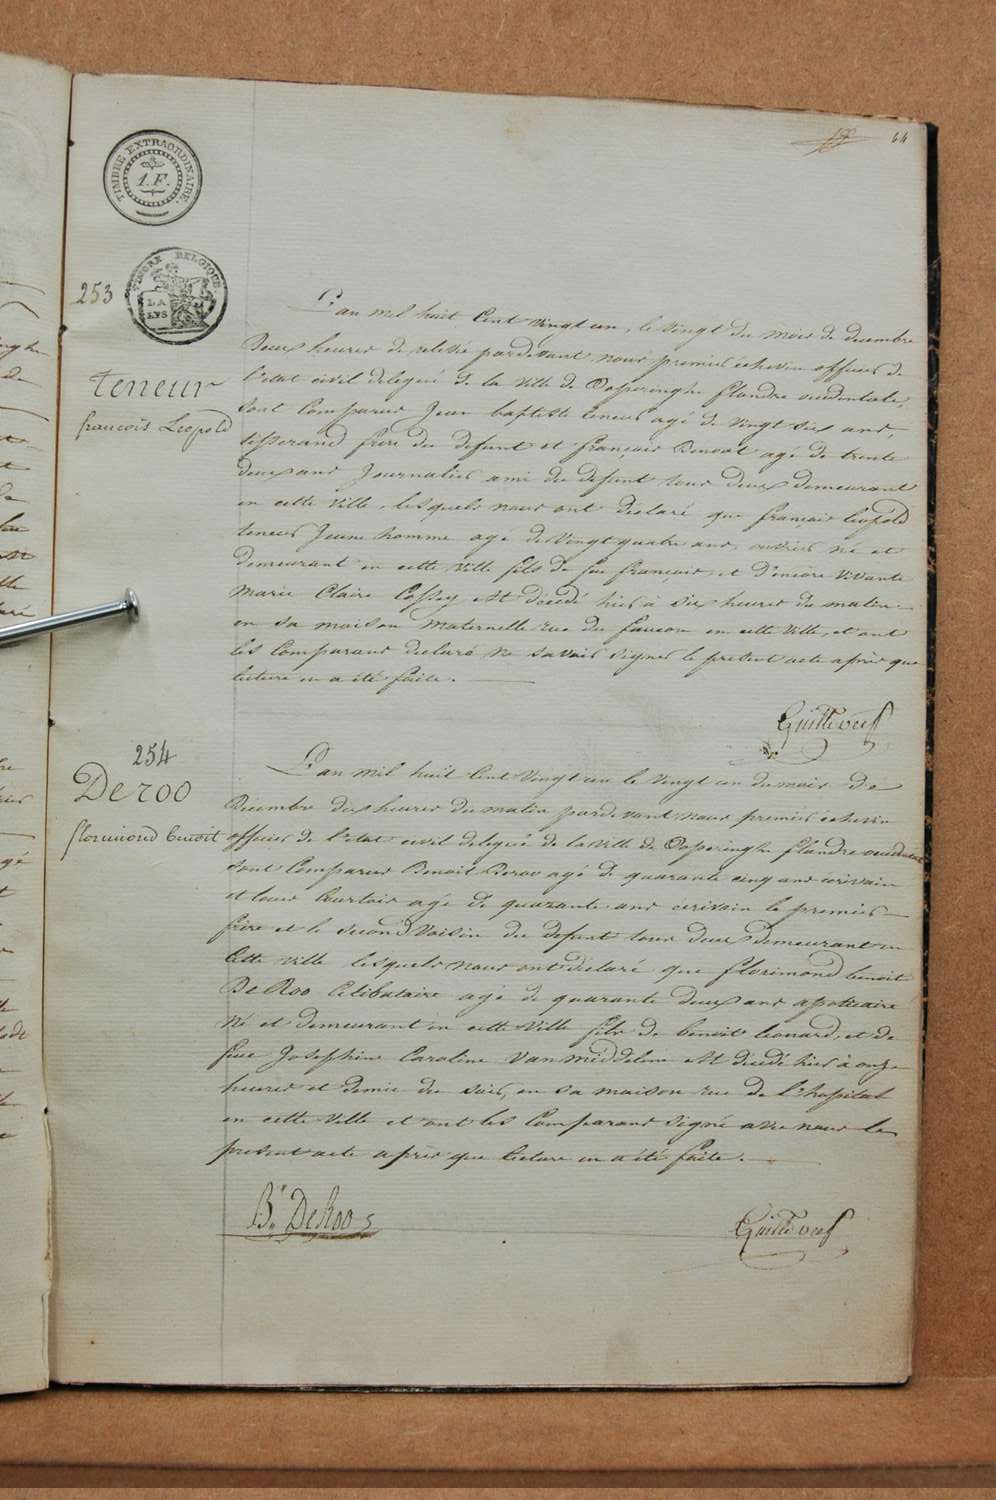 64
TIMBRE EXTRAORDINAIRE.
1.F.
TIMBRE BELGIQUE
LA
LYS
253
teneur
francois Leopold
L'an mil huit Cent vingt un, le vingt du mois de decembre
Deux heures de relevée pardevant nous premier échevin officier de
l'état civil delegué de la ville de Poperinghe flandre occidentale,
sont Comparus Jean baptiste teneur agé de vingt six ans,
tisserand frere du defunt et françois Benoot agé de trente
deux ans Journalier ami du defunt tous deux demeurant
en cette ville, lesquels nous ont déclaré que françois leopold
teneur Jeune homme agé de vingt quatre ans, ouvrier né et
demeurant en cette ville fils de feu françois, et d'encore vivante
Marie Claire Cossey est decedé hier à six heures du matin
en sa maison maternelle rue du faucon en cette ville, et ont
les Comparans declaré ne savoir signer le present acte après que
lecture en a été faite.
254
De roo
florimond benoit
L'an mil huit Cent vingt un le vingt un du mois de
Decembre dix heures du matin pardevant nous premier échevin
officier de l'état civil delegué de la ville de Poperinghe flandre occidentale
sont Comparus Benoit Deroo agé de quarante cinq ans écrivain
et louis Courtois agé de quarante ans écrivain le premier
frère et le second Voisin du defunt tous deux demeurant en
Cette ville lesquels nous ont déclaré que florimond benoit
De Roo Célibataire agé de quarante deux ans apoticaire
né et demeurant en cette ville fils de benoit leonard, et de
feue Josephine Caroline Vanmiddelem est décédé hier à onze
heures et demie du soir, en sa maison rue de l'hopital
en cette ville et ont les Comparans signé avec nous le
present acte après que lecture en a été faite.
Bt. DeRoo